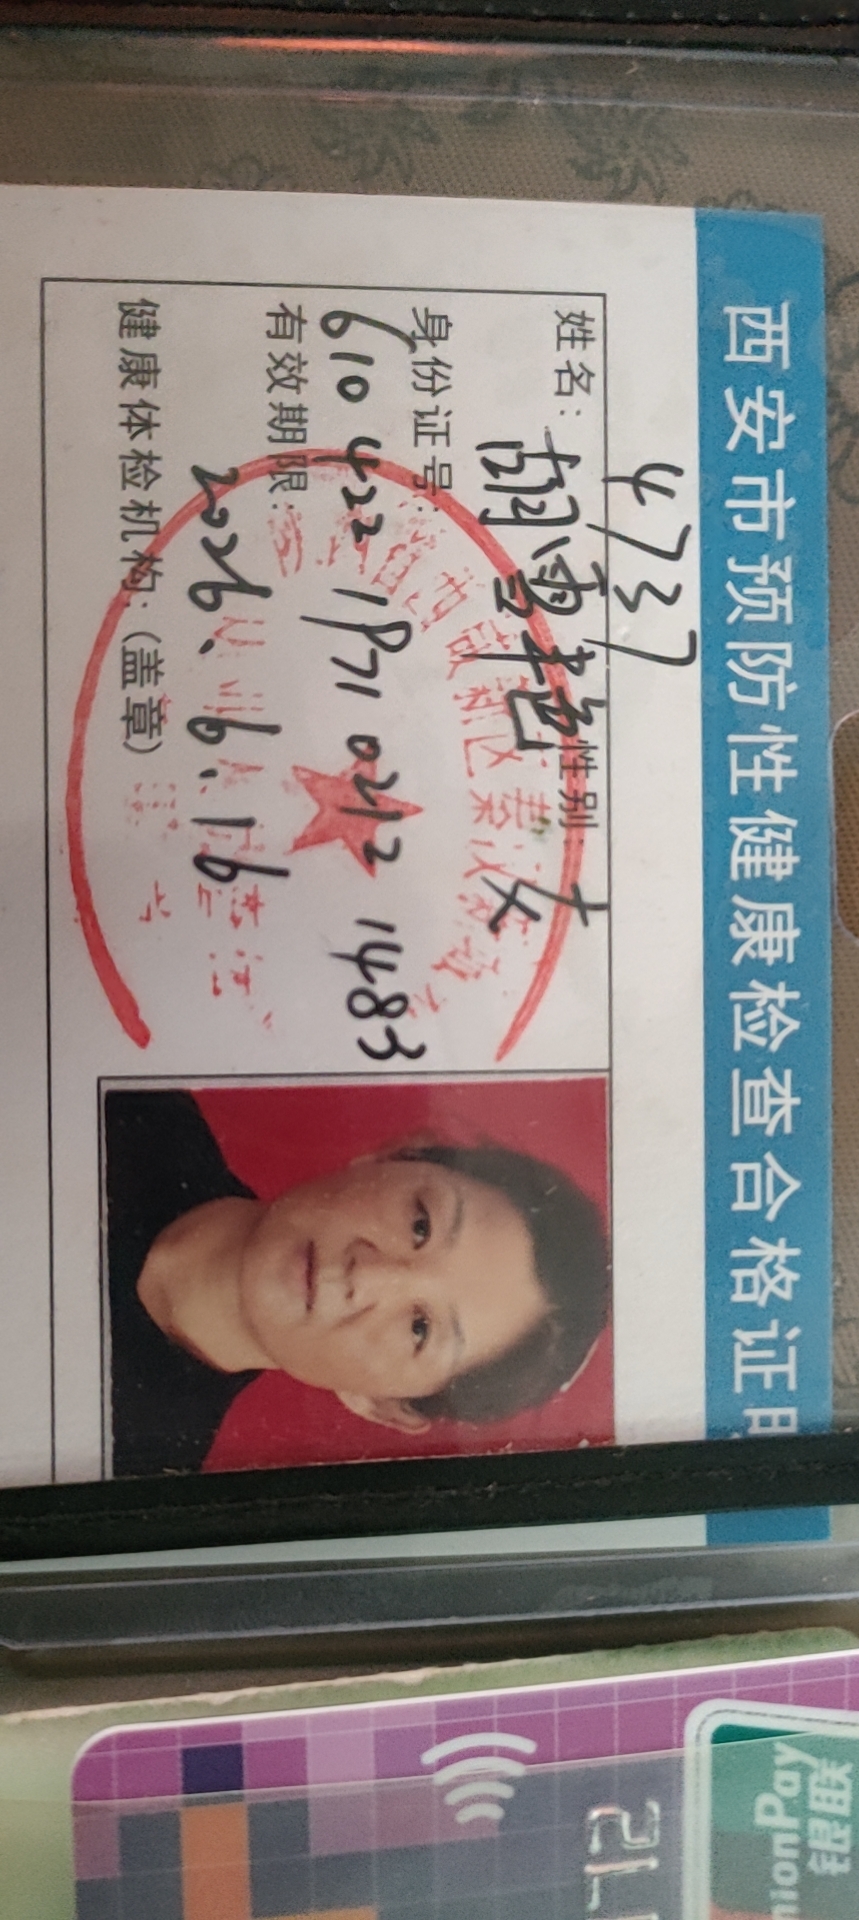 西安市预防性健康检查合格证明
4737
姓名: 胡雪艳 性别: 女
身份证号:
610422 1971 0212 1483
有效期限:
2026.6.16
健康体检机构: (盖章)
银联
UnionPay